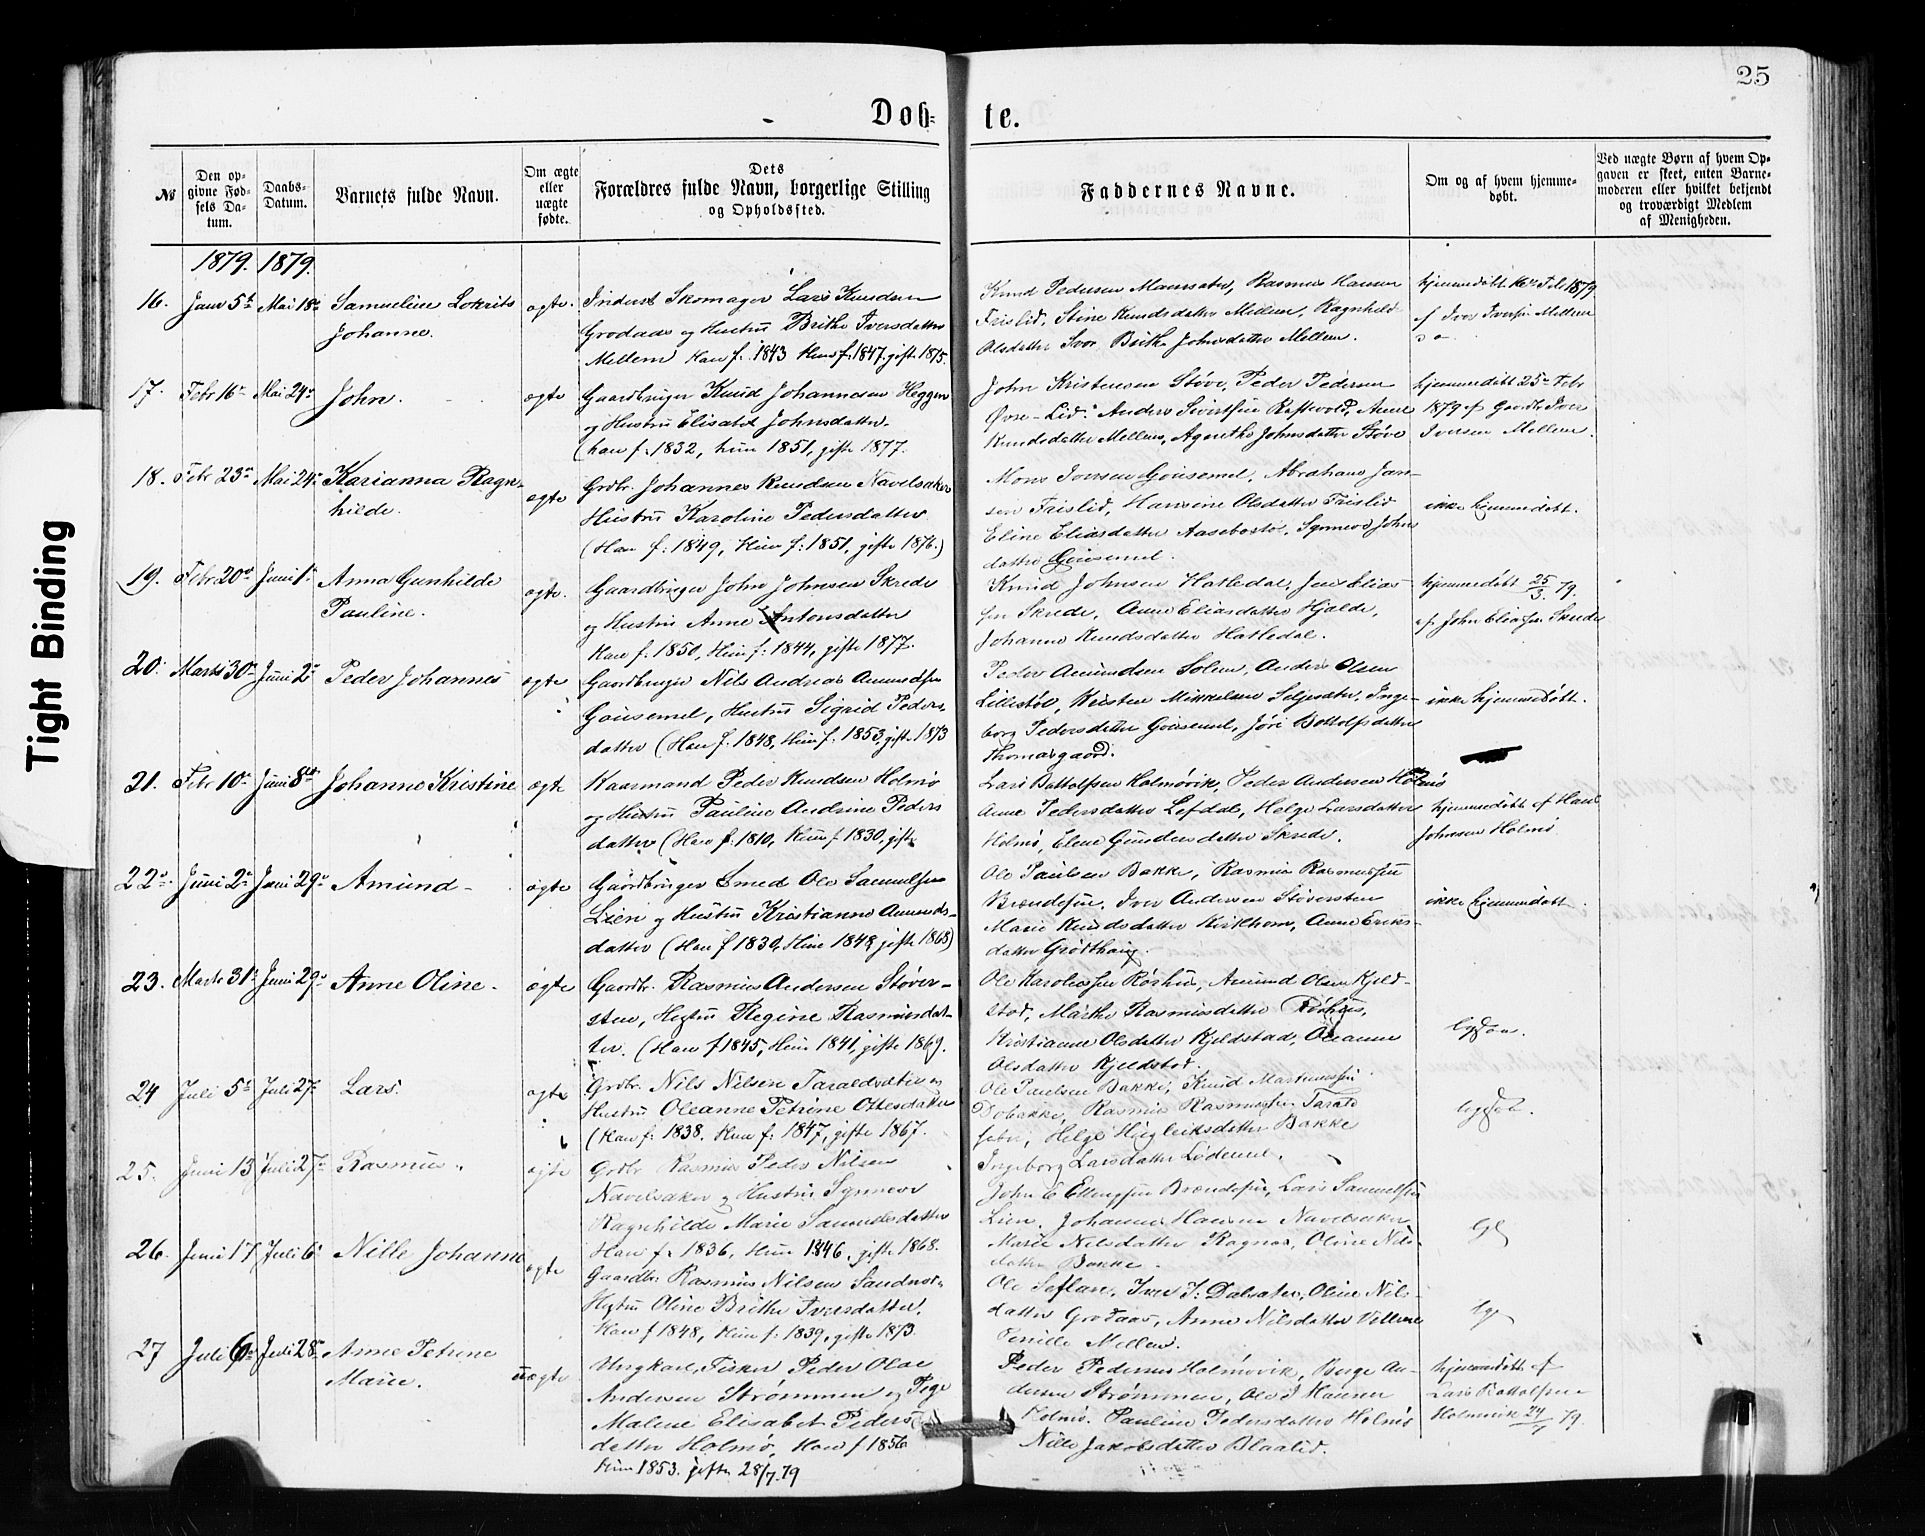 25
Døb= te.
№
Den opgivne Fødsels Datum.
Daabs-Datum.
Barnets fulde Navn.
Om ægte eller uægte fødte.
Dets Forældres fulde Navn, borgerlige Stilling og Opholdssted.
Faddernes Navne.
Om og af hvem hjemmedøbt.
Ved uægte Børn af hvem Opgaven er skeet, enten Barnemoderen eller hvilket bekjendt og troværdigt Medlem af Menigheden.
1879. 1879.
16. Janr 5t Mai 18de Samueline Lokrits
Johanne.
ægte.
Inderst Skomager Lars Knudsen
Grodaas og Hustru Brithe Iversdatter
Mellem Han f. 1843 Hun f. 1847. gift 1875.
Knud Pedersen Maursæter, Rasmus Hansen
Frislid, Stine Knudsdatter Mellem, Ragnhild
Olsdatter Svor, Brithe Johnsdatter Mellem.
hjemmedøbt 16de Feb 1879
af Iver Iversen Mellem
17. Febr 16de Mai 24de John.
ægte
Gaardbruger Knud Johannesen Heggen
og Hustru Elisabet Johnsdatter
(han f. 1832, hun 1851, gifte 1877.
John Kristensen Støve, Peder Pedersen
Øvre-Lid, Anders Sivertsen Raftevold, Anne
Knudsdatter Mellem, Agnethe Johnsdatter Støve
hjemmedøbt 25de Febr
1879 af Gaardbr Iver
Iversen Mellem.
18. Febr 23de Mai 24de Karianna Ragn-
hilde.
ægte
Grdbr. Johannes Knudsen Navelsaker
Hustru Karoline Pedersdatter
(Han f: 1849, Hun f: 1851, gifte 1876.)
Mons Iversen Gousemel, Abraham Jan-
sen Frislid, Hansine Olsdatter Frislid
Eline Eliasdatter Aasebostø, Synneve Johns
datter Gousemel.
ikke hjemmedøbt.
19. Febr 20de Juni 1ste Anna Gunhilde
Pauline.
ægte.
Gaardbruger John Johnsen Skrede
og Hustru Anne Antonsdatter
Han f: 1850, Hun f: 1844, gifte 1877.
Knud Johnsen Hatledal, Jens Elias-
sen Skrede, Anne Eliasdatter Hjalde,
Johanne Knudsdatter Hatledal.
hjemmedøbt 25/3 79.
af John Eliassen Skrede
20. Marts 30te Juni 2de Peder Johannes
ægte
Gaardbruger Nils Andreas Amundsen
Gousemel, Hustru Sigrid Peders-
datter (Han f. 1848, Hun f. 1853, gift 1873
Peder Amundsen Solem, Anders Olsen
Lillestøl, Kristen Mikkelsen Seljesæter, Inge-
borg Pedersdatter Gousemel, Jøri Bottolfsdatter
Thomasgaard.
ikke hjemmedøbt.
21. Febr 10de Juni 8de Johanne Kristine
ægte
Kaarmand Peder Knudsen Holmø
og Hustru Pauline Andrine Peders
datter (Han f: 1810, Hun f. 1830, gift
Lars Bottolfsen Holmøvik, Peder Andersen Holmø
Anne Pedersdatter Løfdal, Helge Larsdatter
Holmø, Elene Gundersdatter Skrede.
hjemmedøbt af Hans
Johnsen Holmø
22. Juni 2de Juni 29de Amund
ægte
Gaardbruger Smed Ole Samuelsen
Lien og Hustru Kristianne Amunds-
datter (Han f 1830, Hun 1848, gifte 1868)
Ole Paulsen Bakke, Rasmus Rasmussen
Brændesen, Iver Andersen Støversten
Marie Knudsdatter Kirkhorn, Anne Eriks-
datter Grøthaug.
ikke hjemmedøbt.
23. Marts 31te Juni 29de Anne Oline.
ægte
Gaardbr. Rasmus Andersen Støver-
sten, Hustru Regine Rasmusdat-
ter. (Han f 1845, Hun 1841, gifte 1869.
Ole Karoliussen Røshus, Amund Olsen Kjeld-
stad, Marthe Rasmusdatter Røshus,
Kristianne Olsdatter Kjeldstad, Oleanne
Olsdatter Kjeldstad.
24 Juli 5te Juli 27. Lars.
ægte
Grdbr. Nils Nilsen Taraldsæter og
Hustru Oleanne Petrine Ottesdatter
(Han f: 1838. Hun f: 1847, gifte 1867.
Ole Paulsen Bakke, Knud Martinussen
Dobakke, Rasmus Rasmussen Tarald
sæter, Helge Hugleiksdatter Bakke
Ingeborg Larsdatter Lødemel.
25. Juni 13 Juli 27de Rasmus.
ægte
Grdbr Rasmus Peder Nilsen
Navelsaker og Hustru Synneve
Ragnhilde Marie Samuelsdatter
Han f. 1836, Hun 1846, gifte 1868.
John E Ellingsen Brændesen, Lars Samuelsen
Lien, Johannes Hansen Navelsaker
Marie Nilsdatter Ragnes, Oline Nils-
datter Bakke.
26. Juni 17 Juli 6 Nille Johanne
ægte
Gaardbr Rasmus Nilsen Sandnes
Hustru Oline Brithe Iversdatter.
Han f 1848, Hun f: 1839, gifte 1873.
Ole Seflare, Iver J. Dalsæter, Oline Nils-
datter Grodaas, Anne Nilsdatter
Pernille Mellem.
27 Juli 6te Juli 28de Anne Petrine
Marie.
uægte
Ungkarl, Fisker Peder Olai
Andersen Strømmen og Pige
Malene Elisabet Peders
datter Holmø, Han f 1856
Hun 1853. gifte 28/7.79
Peder Pedersen Holmøvik, Berge An-
dersen Strømmen, Ole J Hansen
Holmø. Pauline Pedersdatter Holmø
Nille Jakobsdatter Blaalid.
hjemmedøbt af
Lars Bottolfsen
Holmevik 24/7 79.
Tight Binding